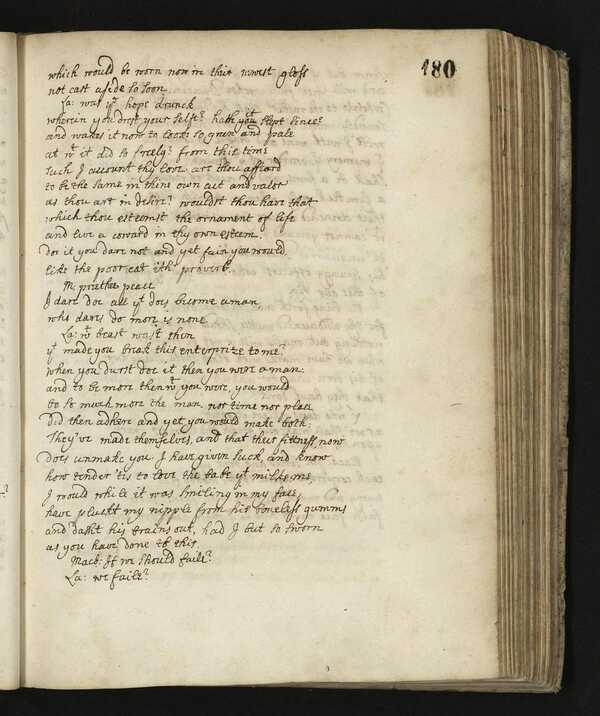 180
which would be worn now in their newest gloss
not cast aside so soon
La: was yt hope drunck
wherein you drest your selfe? hath it you slept since?
and wakes it now to looke so green and pale
at wt it did so freely? from this time
such I account thy love art thou affeard
to be the same in thine own act and valor
as thou art in desire? wouldst thou have that
which thou esteemst the ornament of life
and live a coward in thy own esteem.
doe it you dare not and yet fain you would
like the poor cat ith' proverb.
M: priethee peace
I dare doe all yt does become a man,
who dares do more is none
La: wt beast wast then
yt made you break this enterprize to me?
when you durst doe it then you were a man.
and to be more then wt you were, you would
be so much more the man, nor time nor place
did then adhere and yet you would make both:
They've made themselves, and that their fittness now
does unmake you I have given suck, and know
how tender 'tis to love the babe yt milks me,
I would while it was smileing in my face,
have pluckt my nipple from his boneless gumms
and dasht his brains out, had I but so sworn
as you have done to this
Macb: If we should faile?
La: we faile?